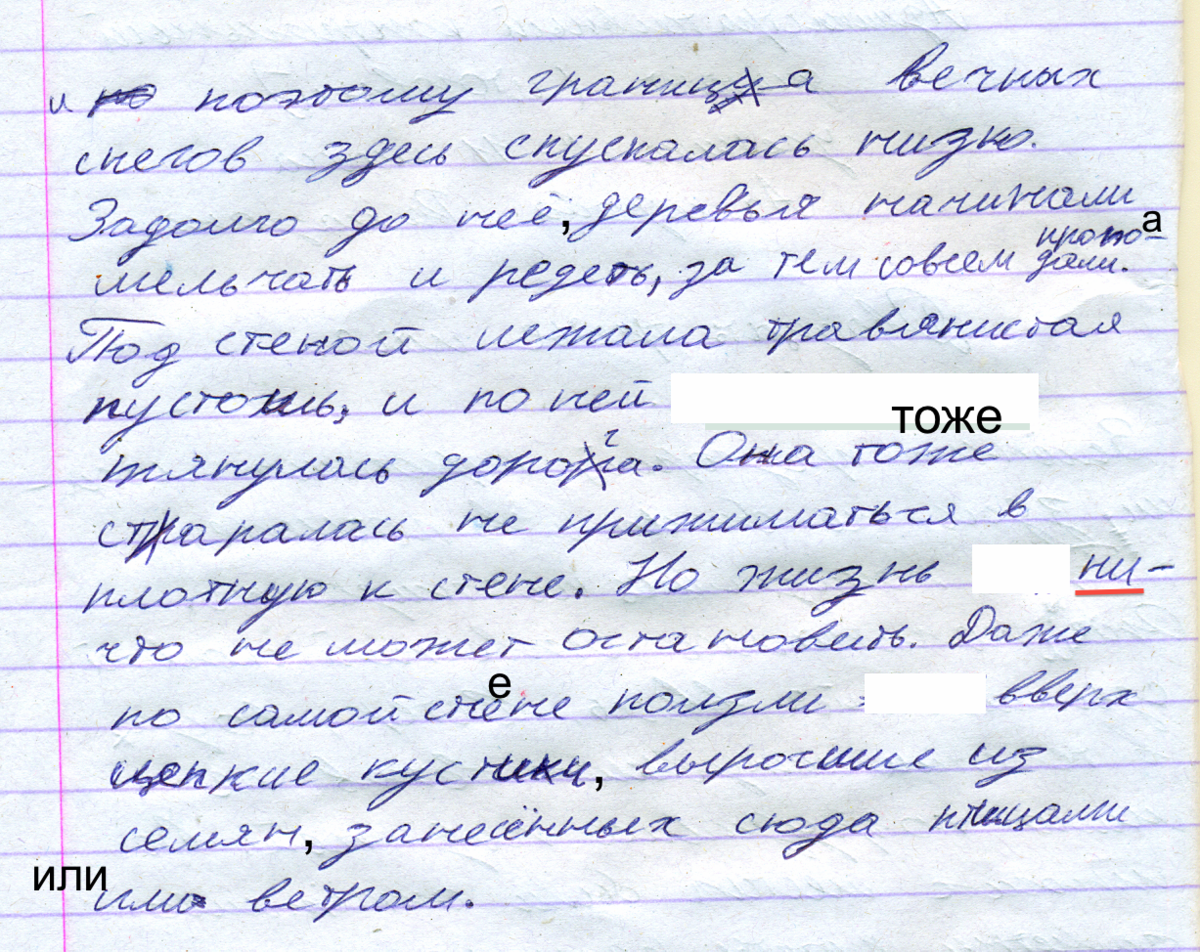 и поэтому граница вечных
снегов здесь спускалась низко.
Задолго до неё, деревья начинали
мельчать и редеть, за тем совсем пропа-
дали.
Под стеной лежала травянистая
пустошь, и по ней тоже
тянулась дорога. Она тоже
старалась не прижиматься в
плотную к стене. Но жизнь ни-
что не может остановить. Даже
по самой стене ползли вверх
цепкие кустики, выросшие из
семян, занесённых сюда птицами
или ветром.